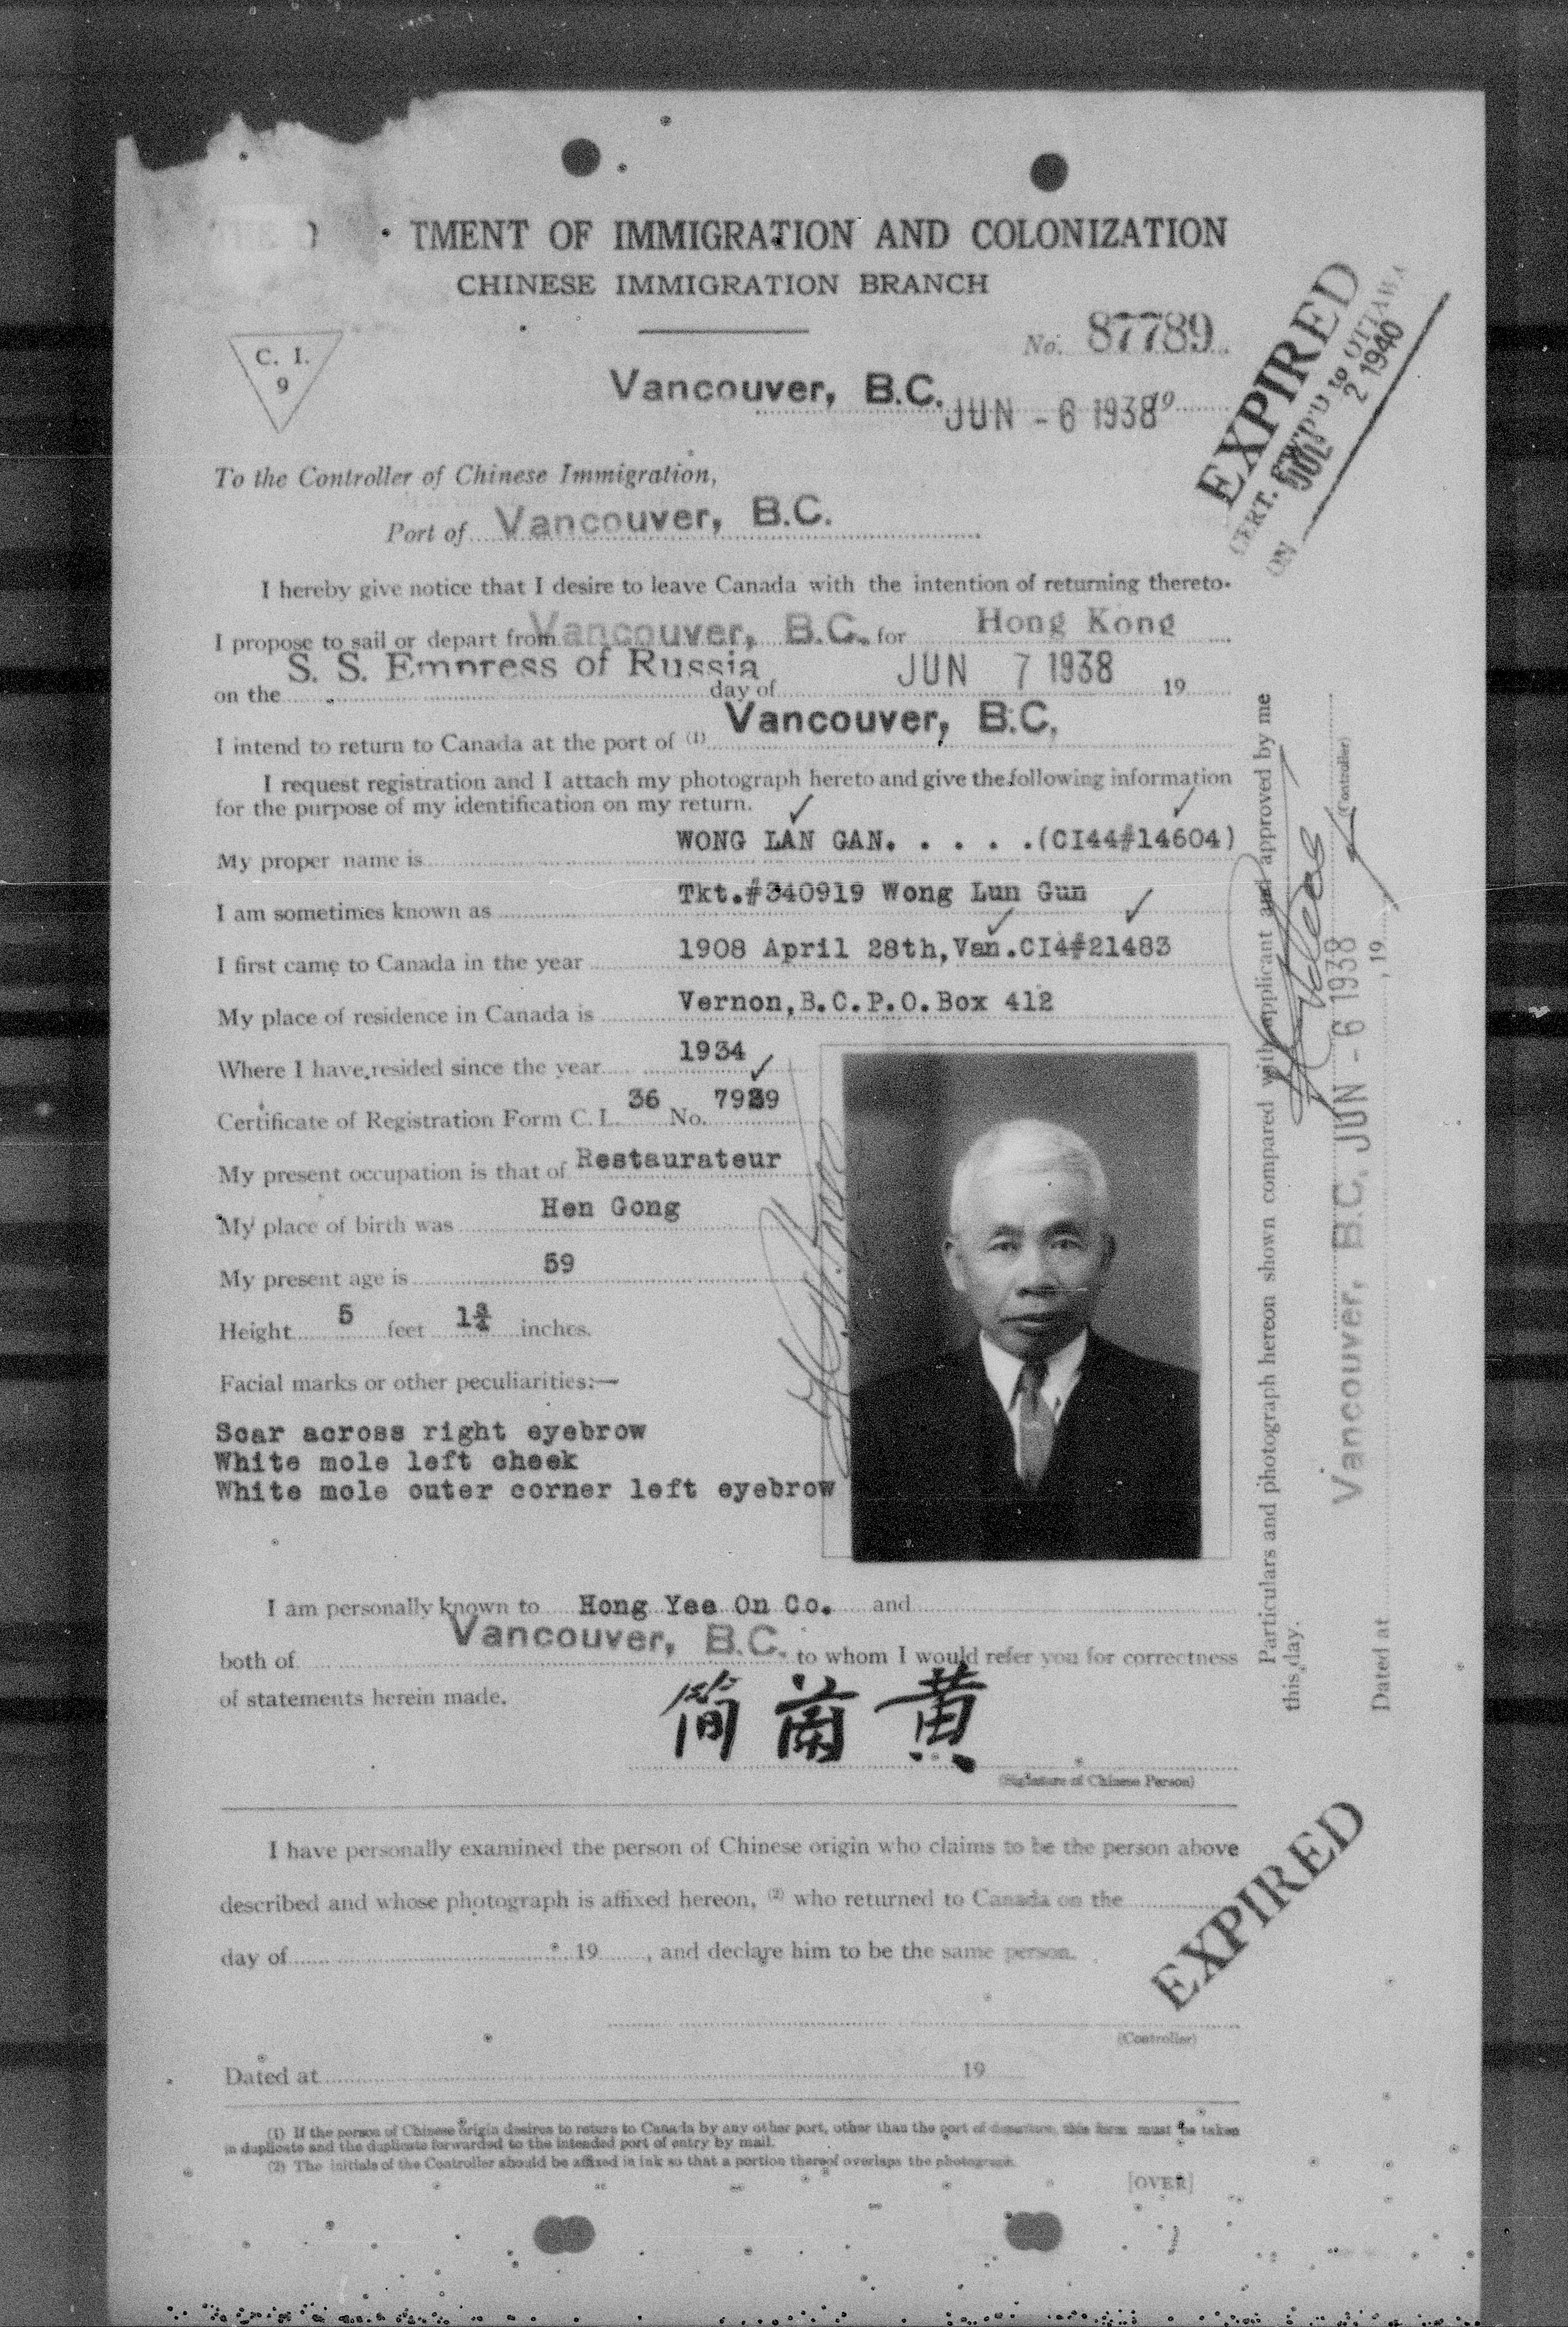 TMENT OF IMMIGRATION AND COLONIZATION
CHINESE IMMIGRATION BRANCH
C. I.
9
No. 87789
Vancouver, B.C. JUN - 6 1938 19
EXPIRED
CERT. FW'P'D to OTTAWA
ON JUL 2 1940
To the Controller of Chinese Immigration,
Port of Vancouver, B.C.
I hereby give notice that I desire to leave Canada with the intention of returning thereto.
I propose to sail or depart from Vancouver, B.C. for Hong Kong
S. S. Empress of Russia
on the day of JUN 7 1938 19
I intend to return to Canada at the port of (1) Vancouver, B.C.
I request registration and I attach my photograph hereto and give the following information
for the purpose of my identification on my return.
My proper name is WONG LAN GAN. . . . .(CI44#14604)
I am sometimes known as Tkt.#340919 Wong Lun Gun
I first came to Canada in the year 1908 April 28th, Van.CI4#21483
My place of residence in Canada is Vernon,B.C.P.O.Box 412
Where I have resided since the year 1934
Certificate of Registration Form C. I. 36 No.
My present occupation is that of Restaurateur
My place of birth was Hen Gong
My present age is 59
Height 5 feet 1¾ inches.
Facial marks or other peculiarities:—
Scar across right eyebrow
White mole left cheek
White mole outer corner left eyebrow
I am personally known to Hong Yee On Co. and
both of Vancouver, B.C. to whom I would refer you for correctness
of statements herein made.
簡蘭黃
(Signature of Chinese Person)
Particulars and photograph hereon shown compared with applicant and approved by me
this day.
(Controller)
Vancouver, B.C. JUN - 6 1938
Dated at , 19
I have personally examined the person of Chinese origin who claims to be the person above
described and whose photograph is affixed hereon, (2) who returned to Canada on the
day of 19 , and declare him to be the same person.
EXPIRED
(Controller)
Dated at 19
(1) If the person of Chinese origin desires to return to Canada by any other port, other than the port of departure, this form must be taken
in duplicate and the duplicate forwarded to the intended port of entry by mail.
(2) The initials of the Controller should be affixed in ink so that a portion thereof overlaps the photograph.
[OVER]